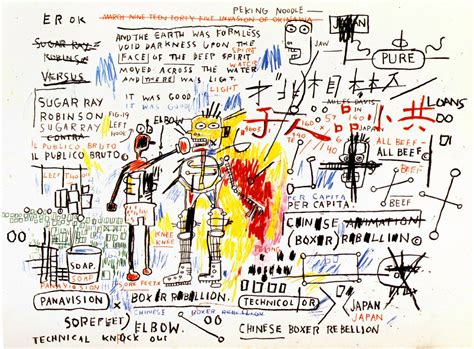 PEKING NOODLE
ER OK
MARCH NINE TEEN FORTY FIVE INVASION OF OKINAWA
JAPAN
AND THE EARTH WAS FORMLESS
VOID DARKNESS UPON THE
FACE OF THE DEEP SPIRIT
SPIRIT
MOVED ACROSS THE WATER
WATER
AND THERE WAS LIGHT.
LIGHT
IT WAS GOOD.
IT WAS GOOD.
JAW
PURE
SUGAR RAY
ROBINSON
VERSUS
SUGAR RAY
ROBINSON
SUGARRAY
CONTRA
FIG.19
LEFT
HOOK
IL PUBLICO BRUTO©
IL PUBLICO BRUTO
ELBOW
MILES DAVIS
IN
JAPAN
LOANS
千人品小共
ALL BEEF
ALL BEEF
ALL BEEF
PER CAPITA
PER CAPITA
CHINESE ANIMATION
BOXER REBELLION©
KNEE
KNEE
SOAP
SOAP.
PANAVISION
PANAVISION
SORE FEET
BOXER REBELLION.
CHINESE BOXER REBELLION
TECHNICOLOR
JAPAN
JAPAN
SOREFEET
ELBOW.
CHINESE BOXER REBELLION
TECHNICAL KNOCK OUT